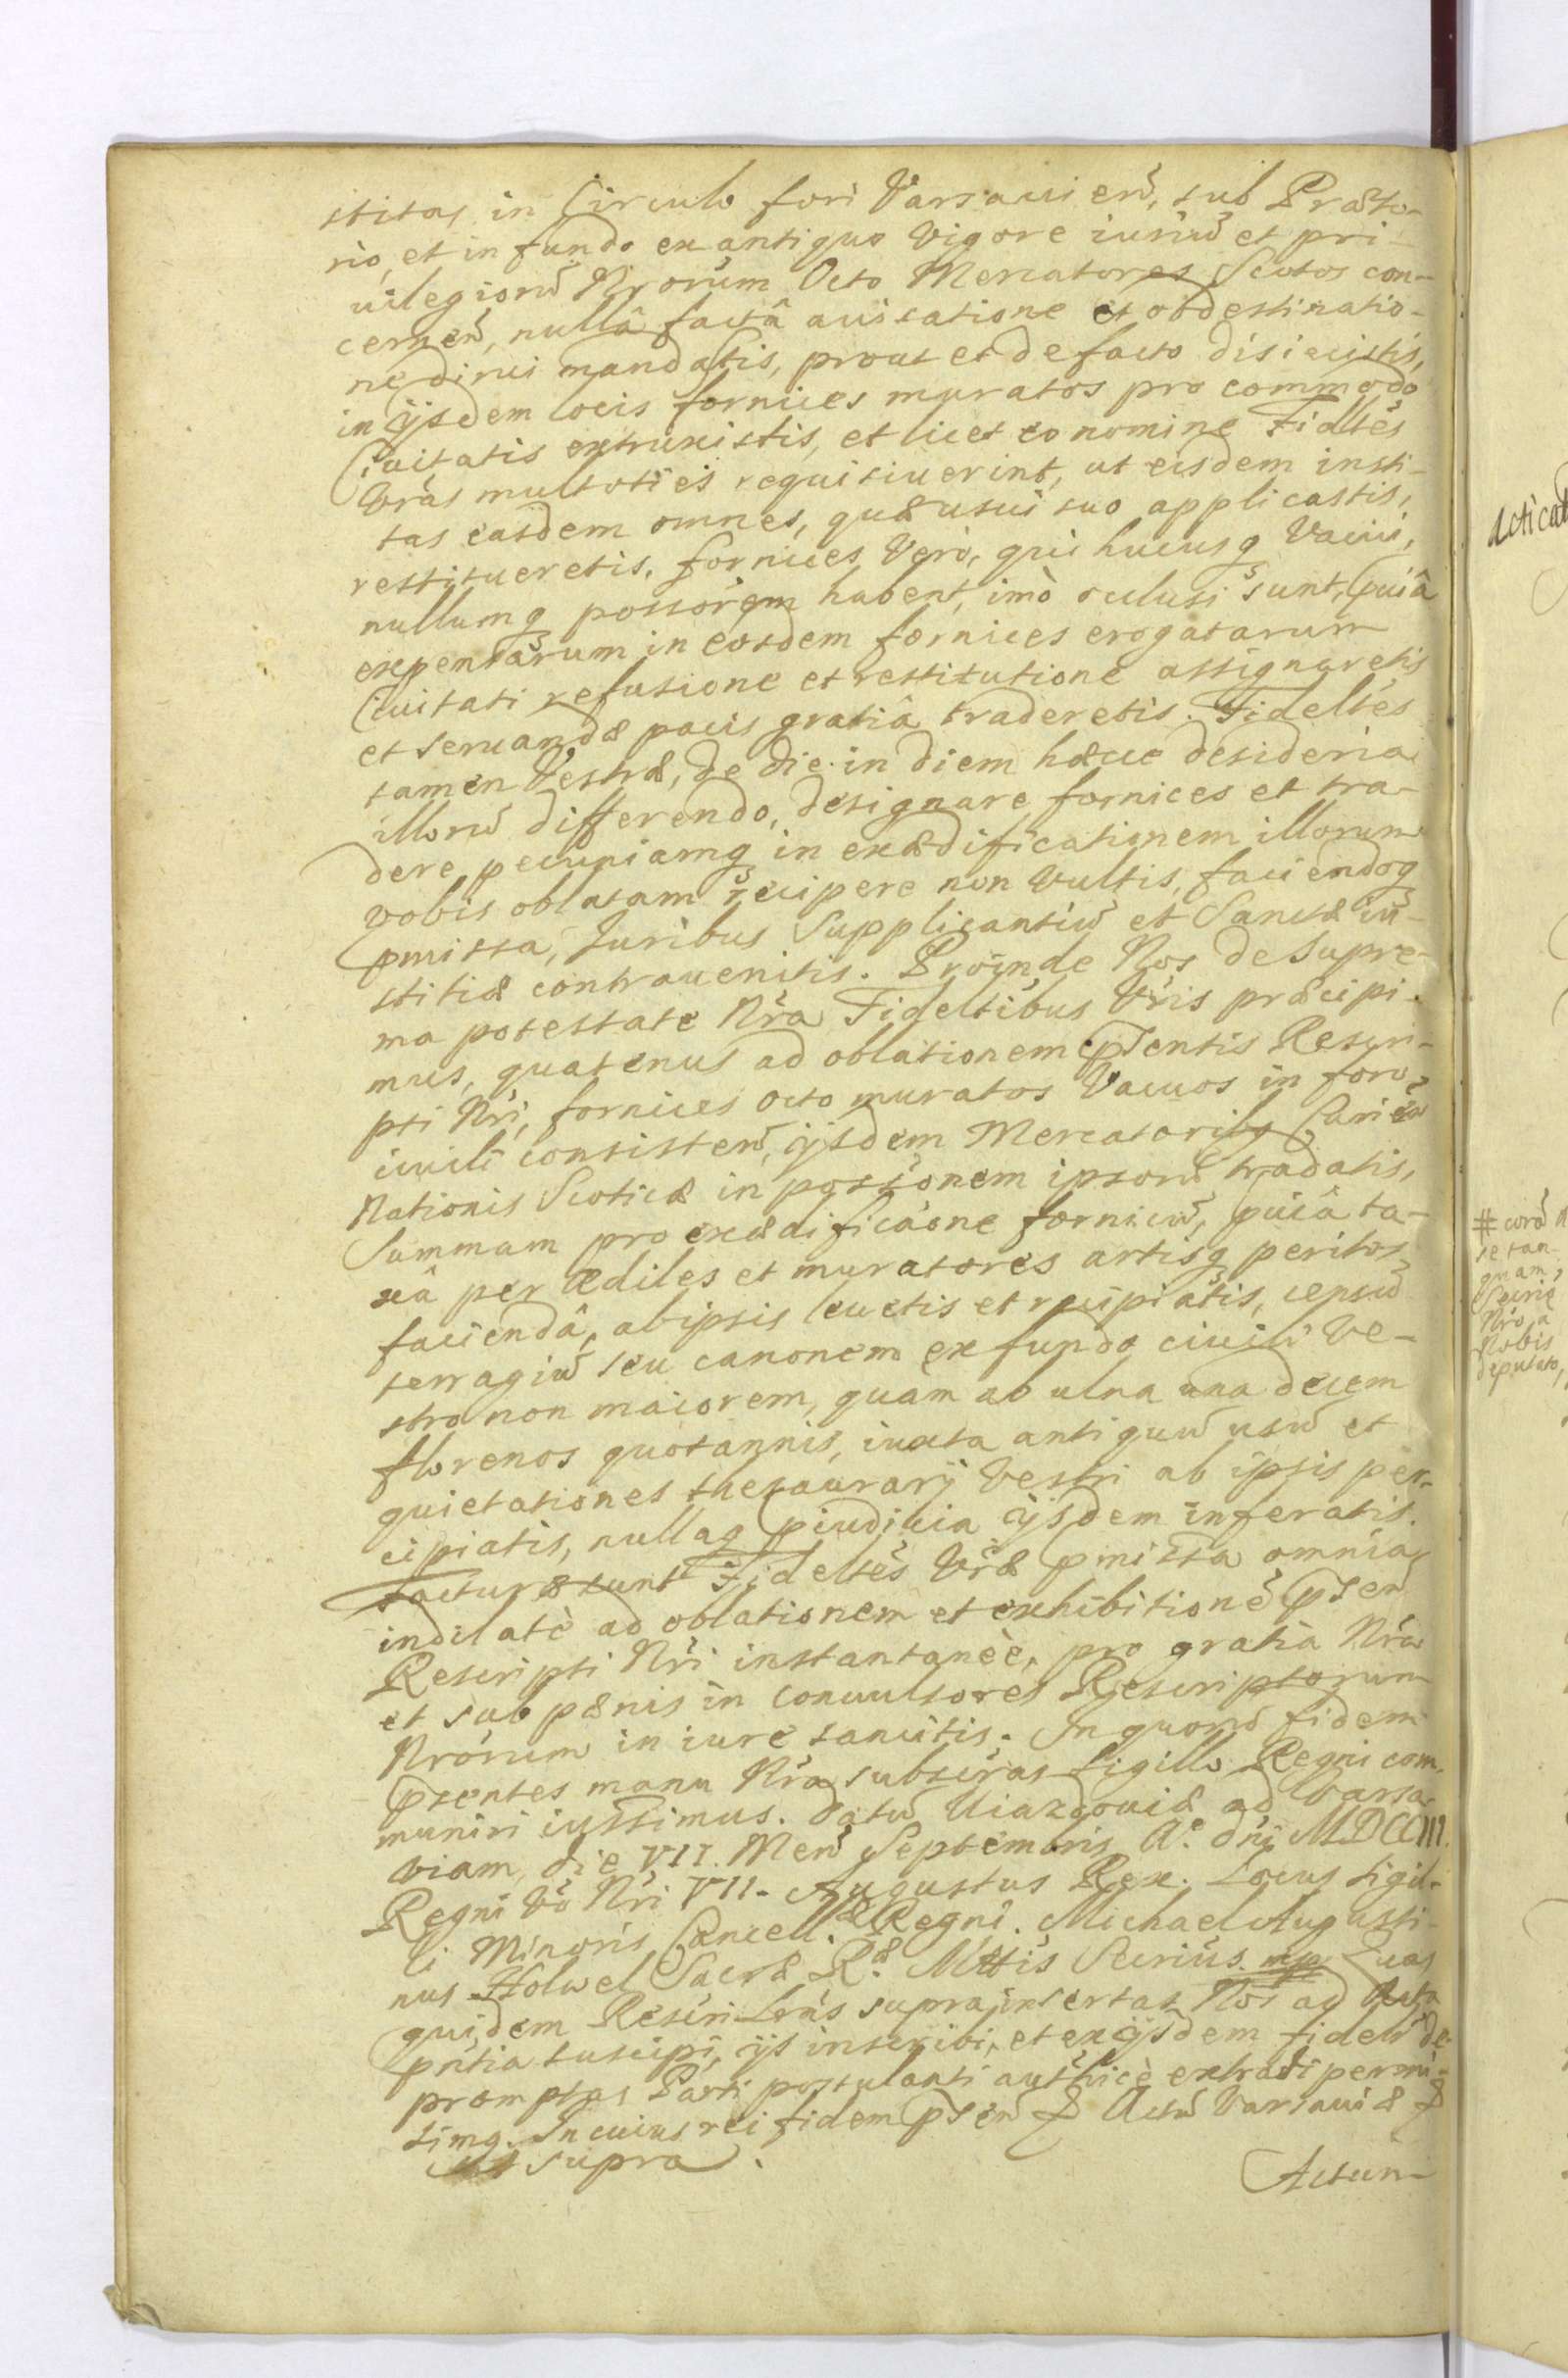 stitas in Circulo fori Varsauien̄, sub Præto-
rio, et in fundo ex antiquo Vigore iuriū et pri-
uilegiorū Nrorum Octo Mercatores Scotos con-
cernen̄, nullâ factâ auisatione et obdestinatio-
ne dirui mandastis, prout et de facto disiecistis,
in ijsdem locis fornices muratos pro commodo
Ciuitatis extruxistis, et licet eo nomine Fidltēs
Vrās multoties requisiuerint, ut eisdem insti-
tas easdem omnes, quæ usui suo applicastis,
restitueretis, fornices Vero, qui hucusq Vacui,
nullumq possorem habent, imò oclusi sunt, puiâ
expensarum in eosdem fornices erogatarum
Ciuitati refusione et restitutione assignaretis
et seruandæ pacis gratiâ traderetis. Fideltēs
tamen Vestræ, de die in diem hæcce desideria
illorū differendo, designare fornices et tra-
dere pecuniamq in exædificationem illorum
vobis oblatam recipere non Vultis, faciendoq
pmissa, Iuribus Supplicantiū et Sanctæ iu-
stitiæ contrauenitis. Proinde Nos de Supre-
ma potestate Nrā Fideltibus Vrīs præcipi-
mus, quatenus ad oblationem pntis Rescri-
pti Nri, fornices octo muratos Vacuos in foro
iuili consisten̄, ijsdem Mercatoribq
Nationis Scoticæ in possionem ipsorū tradatis,
Summam pro exædificaōne fornicū, puiâ ta-
xâ per Ædiles et muratores artisq peritos
faciendâ, ab ipsis leuetis et recipiatis, censū
terragiū seu canonem ex fundo ciuili Ve-
stro non maiorem, quàm ab ulna una decem
florenos quotannis, iuxta antiquū usū et
quietationes thesaurarij Vestri ab ipsis per-
cipiatis, nullaq piudicia ijsdem inferatis.
Facturæ sunt Fideltēs Vrǣ pmissa omnia
indilatè ad oblationem et exhibitionē pnsen̄
Rescripti Nri instantaneè, pro gratia Nrā
et sub pænis in conuulsores Rescriptorum
Nrōrum in iure sancitis. In quorū fidem
psentes manu Nrā subscrās Sigillo Regni com-
muniri iussimus. Datū Uiazdouiæ ad Varsa-
viam, die VII. Men̄ Septembris A.o dni MDCCIII.
Regni Vō Nri VII. Augustus Rex. Locus Sigil-
li Minoris Cancell.æ Regni. Michael Augusti-
nus Holwel Sacræ R.æ Mttis Secrius mp Quas
quidem Rescri Lrās suprainsertas Nos ad Acta
pntia suscipi, ijs inscribi, et ex ijsdem fidelr de-
promptas Parti postulanti authcè extradi permi-
simq. In cuius rei fidem psen̄ & Actū Varsauiæ &
ut supra.
Actum
Acticat
# corā
se tan-
quam,
Secrio
Nro, a
Nobis
deputato,